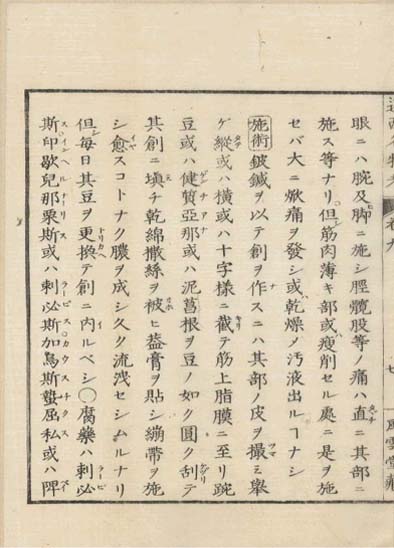 眼ニハ腕及脚ニ施シ脛髖股等ノ痛ハ直ニ其部ニ
施ス等ナリ但筋肉薄キ部或瘦削セル處ニ是ヲ施
セバ大ニ焮痛ヲ發シ或乾燥ノ汚液出ルヿナシ
施術 鈹鍼ヲ以テ創ヲ作スニハ其部ノ皮ヲ撮ミ擧
ゲ縱或ハ横或ハ十字樣ニ截テ筋上脂膜ニ至リ豌
豆或ハ健質亞那或ハ泥菖根ヲ豆ノ如ク圓ク刮テ
其創ニ塡チ乾綿撒絲ヲ被ヒ蓋膏ヲ貼シ繃帶ヲ施
シ愈スコトナク膿ヲ成シ久ク流洩セシムルナリ
但毎日其豆ヲ更換テ創ニ内ルベシ〇腐藥ハ刺必
斯印歇兒那栗斯或ハ刺必斯加烏斯蟄屈私或ハ脾